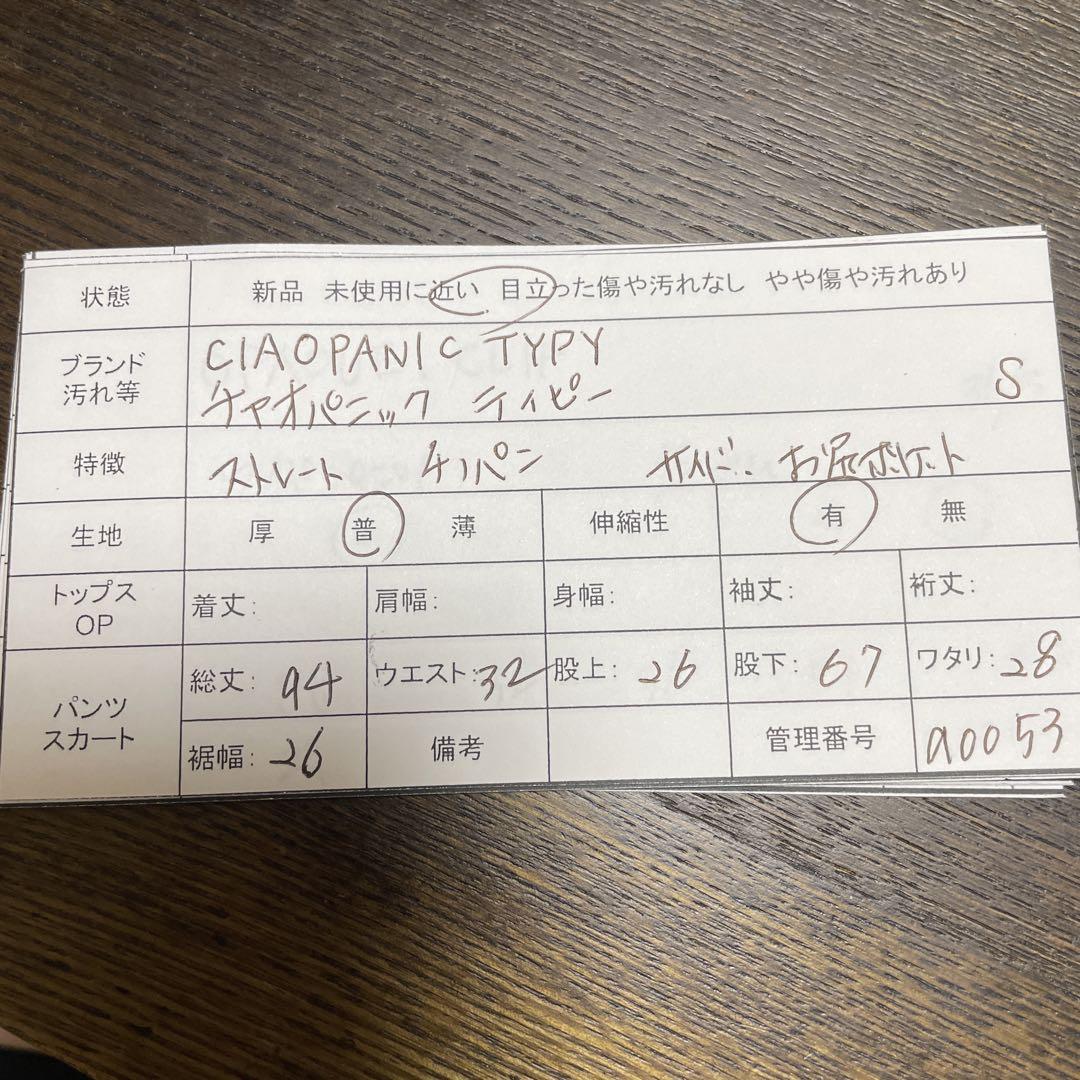 状態 新品 未使用に近い 目立った傷や汚れなし やや傷や汚れあり
ブランド 汚れ等 CIAOPANIC TYPY
チャオパニック ティピー S
特徴 ストレート チノパン サイド、お尻ポケット
生地 厚 普 薄 伸縮性 有 無
トップス OP 着丈: 肩幅: 身幅: 袖丈: 裄丈:
パンツ スカート 総丈: 94 ウエスト: 32 股上: 26 股下: 67 ワタリ: 28
裾幅: 26 備考 管理番号 a0053